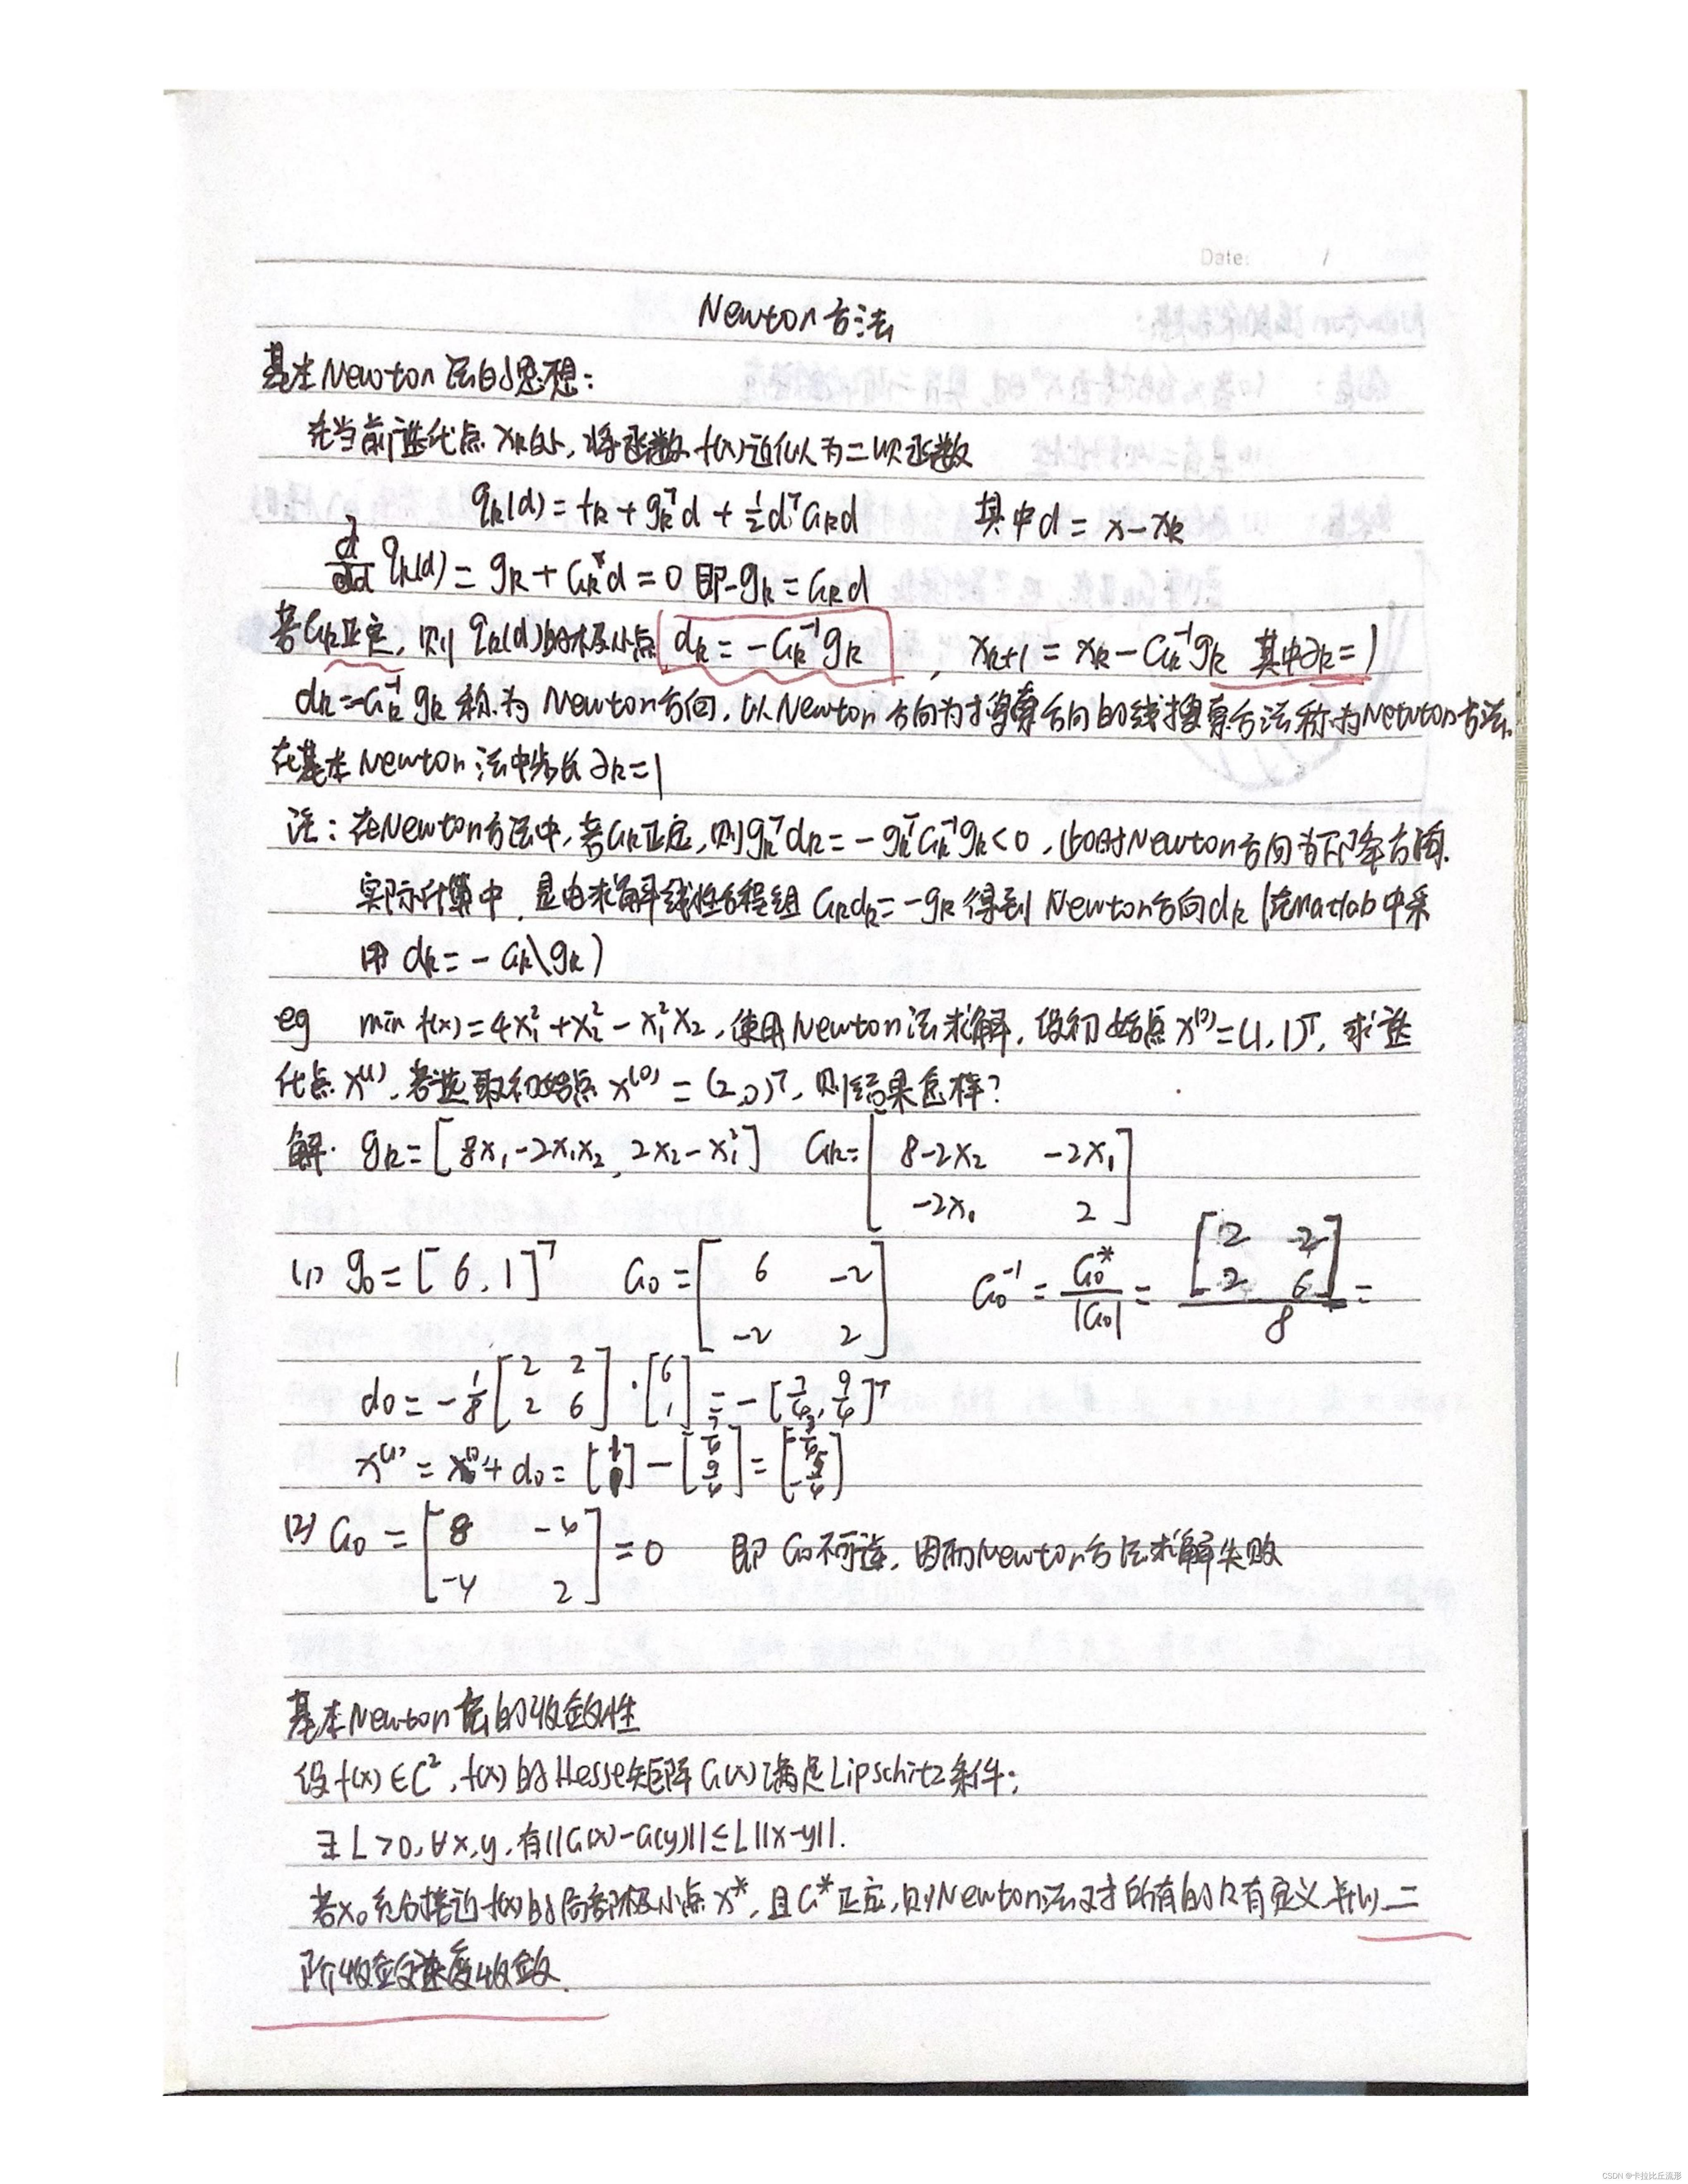 Date: /
Newton方法
基本Newton法的思想:
在当前迭代点 xₖ处, 将函数 f(x)近似为二次函数
qₖ(d) = fₖ + gₖᵀd + ½dᵀGₖd 其中d = x-xₖ
d/dd qₖ(d) = gₖ + Gₖd = 0 即-gₖ = Gₖd
若Gₖ正定, 则 qₖ(d)的极小点 dₖ = -Gₖ⁻¹gₖ , xₖ₊₁ = xₖ - Gₖ⁻¹gₖ 其中∂ₖ=1
dₖ=-Gₖ⁻¹gₖ 称为 Newton方向, 以Newton方向为搜索方向的线搜索方法称为Newton方法.
在基本Newton法中步长∂ₖ=1
注: 在Newton方法中, 若Gₖ正定, 则gₖᵀdₖ = -gₖᵀGₖ⁻¹gₖ<0, 此时Newton方向为下降方向.
实际计算中, 是由求解线性方程组 Gₖdₖ=-gₖ 得到 Newton方向dₖ (在matlab中采
用 dₖ= -Gₖ\gₖ)
eg min f(x)=4x₁²+x₂²-x₁²x₂, 使用Newton法求解, 设初始点x⁽⁰⁾=(1,1)ᵀ, 求迭
代点 x⁽¹⁾, 若选取初始点 x⁽⁰⁾ = (2,0)ᵀ, 则结果怎样?
解. gₖ=[8x₁-2x₁x₂, 2x₂-x₁²] Gₖ=[8-2x₂ -2x₁
-2x₁ 2]
(1) g₀=[6,1]ᵀ G₀=[6 -2
-2 2] G₀⁻¹ = G₀*/|G₀| = [2 2
2 6]/8 =
d₀=-1/8[2 2
2 6]·[6
1]=-[7/4, 9/4]ᵀ
x⁽¹⁾ = x⁽⁰⁾+d₀=[1
1]-[7/4
9/4]=[-3/4
-5/4]
(2) G₀ = [8 -4
-4 2] =0 即G₀不可逆, 因而Newton方法求解失败
基本Newton法的收敛性
设f(x)∈C², f(x)的Hesse矩阵 G(x)满足Lipschitz条件:
∃L>0, ∀x,y, 有||G(x)-G(y)||≤L||x-y||.
若x₀充分接近f(x)的局部极小点x*, 且G*正定, 则Newton法对所有的k有定义并以二
阶收敛速度收敛.
CSDN @卡拉比丘流形